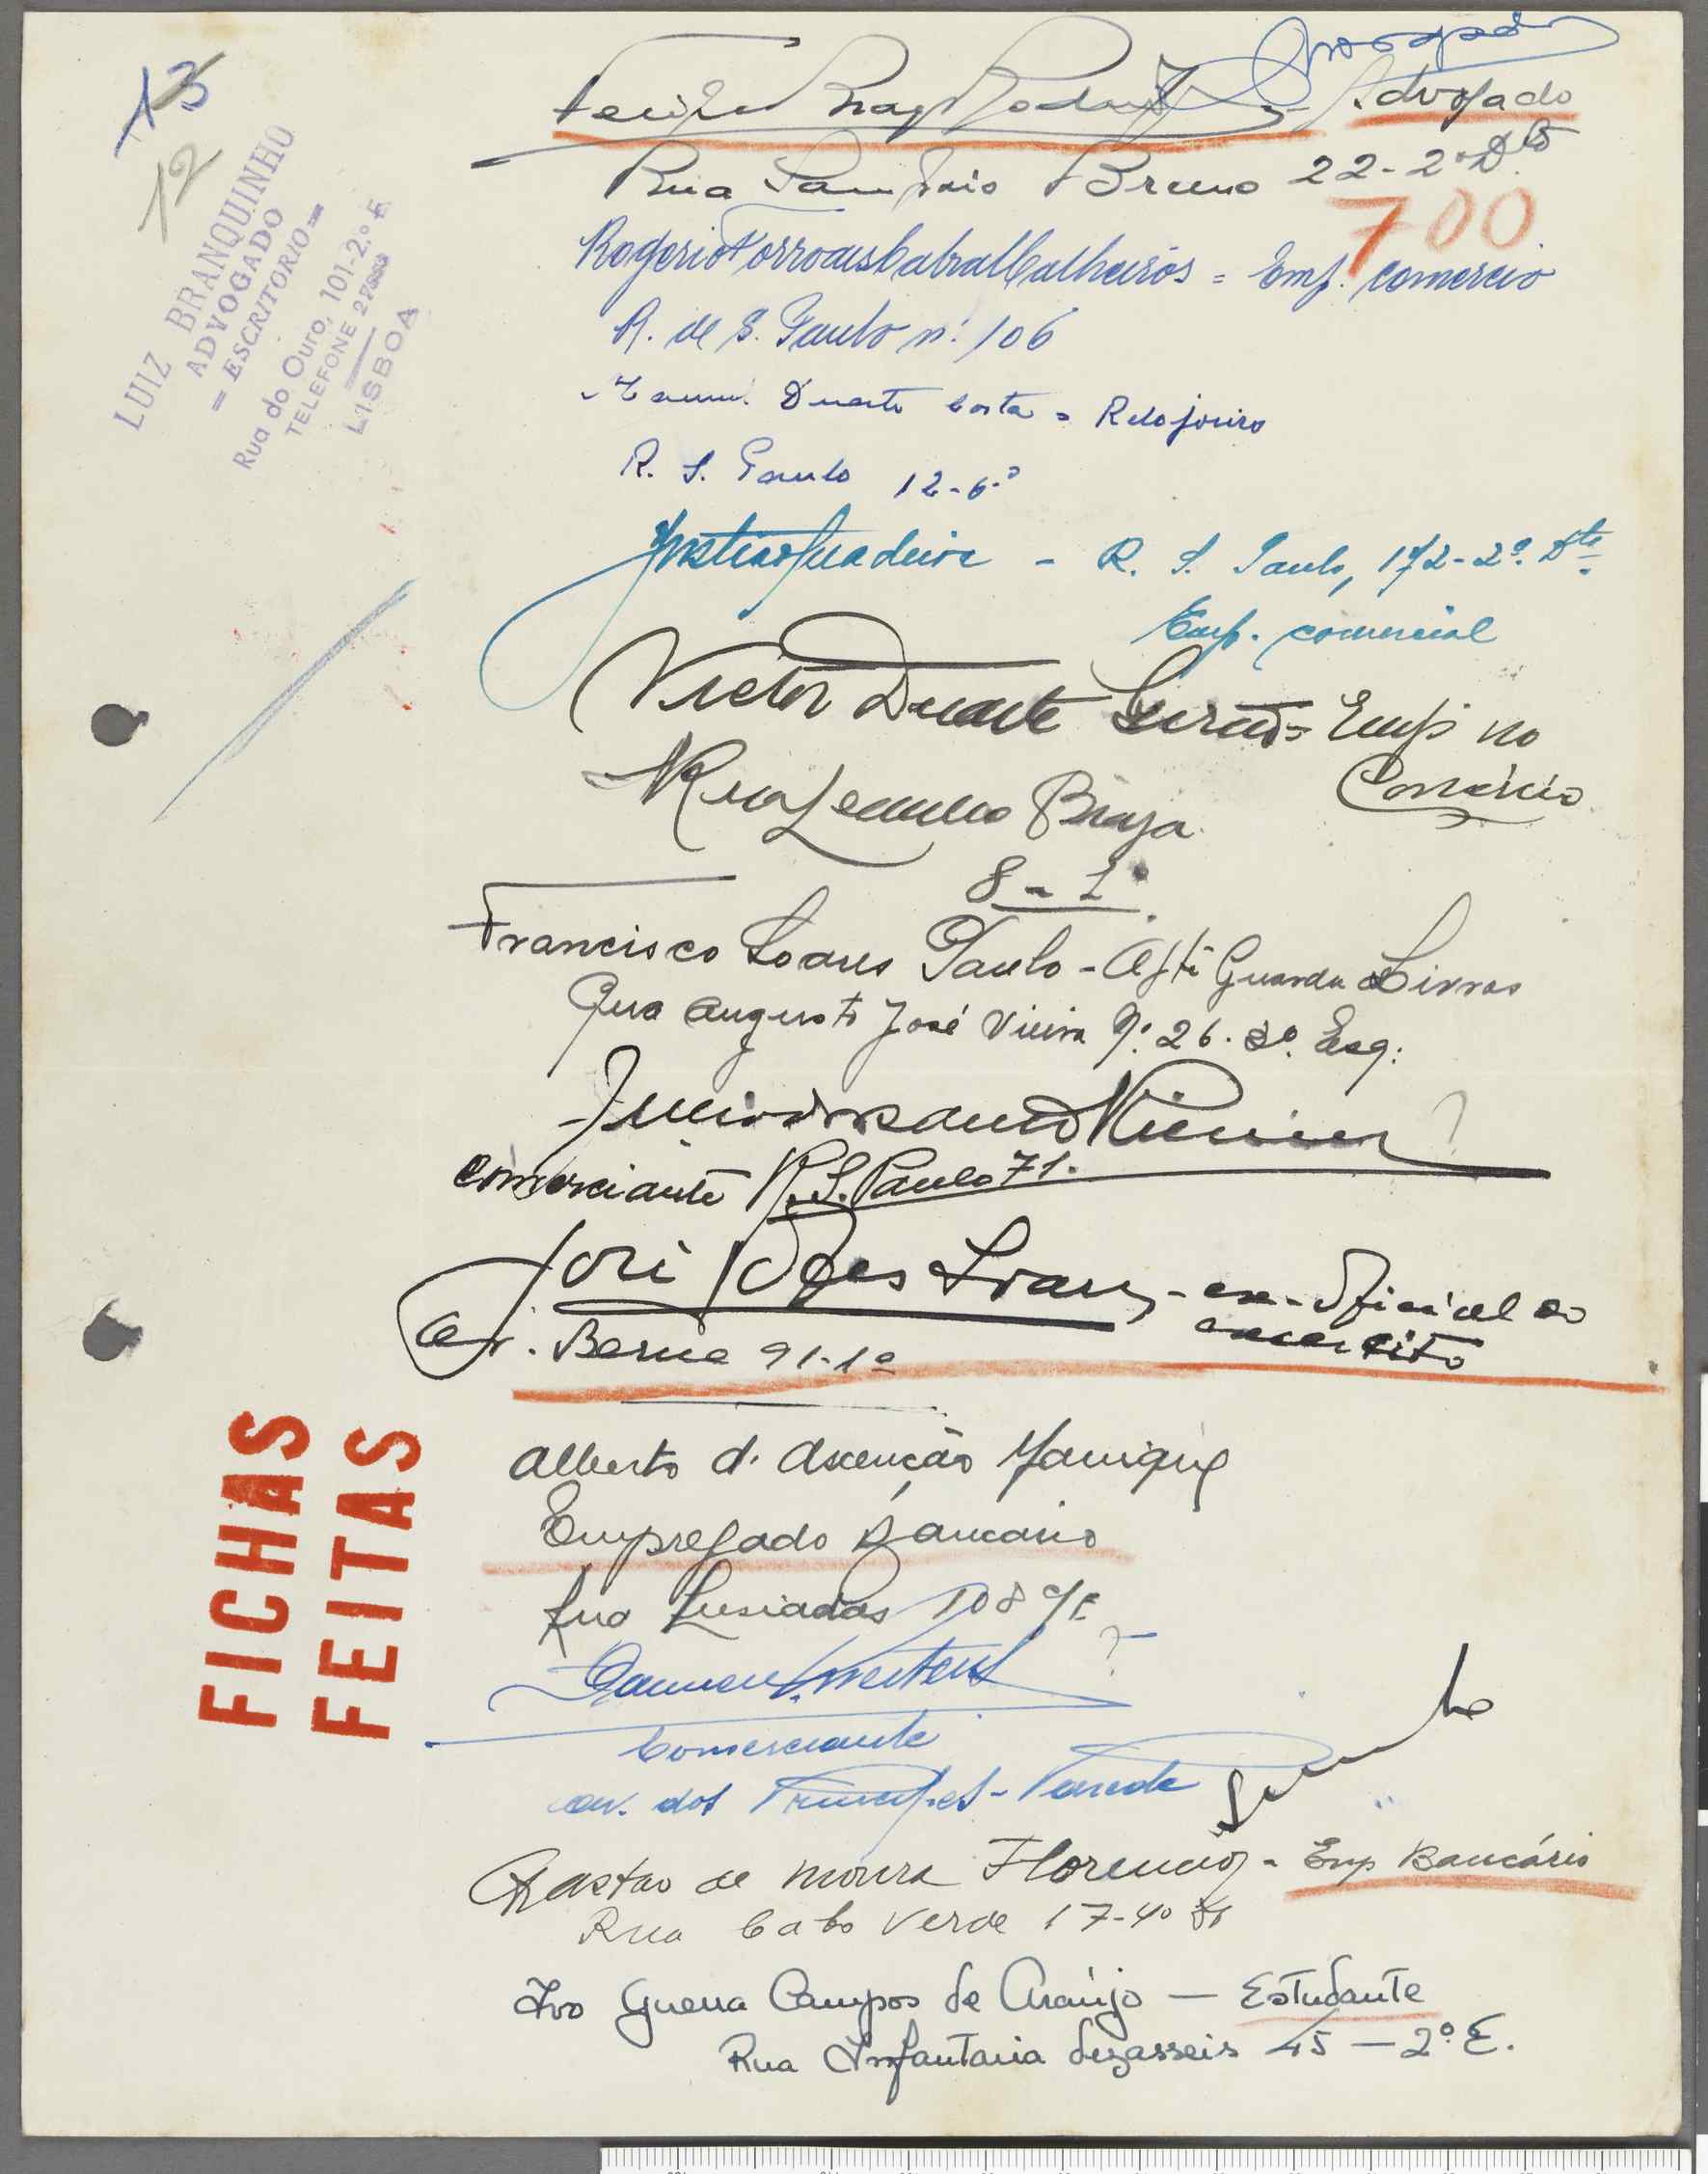 13
12
LUIZ BRANQUINHO
ADVOGADO
= ESCRITORIO =
Rua do Ouro, 101-2.º E
TELEFONE
LISBOA
Advogado
Rua Sampaio Bruno 22-2º Dto
700
Rogerio Cabral Calheiros = Emp. comercio
R. de S. Paulo n.º 106
Duarte Costa = Relojoeiro
R. S. Paulo 12-6.º
- R. S. Paulo, 172-2º Dto
Emp. comercial
Victor Duarte = Emp. no
Comércio
Rua Leandro Braga
8-1º
Francisco Soares Paulo - Guarda Livros
Rua Augusto José Vieira Nº 26. 3º. Esq:
?
Comerciante R. S. Paulo 71.
José Soares - ex-oficial do
exercito
Av. Berne 91-1º
FICHAS
FEITAS
Alberto d. Ascenção Manique
Empregado Bancario
Rua Lusiadas 108
?
Comerciante
av. dos - Parede
Gastão de Moura Florencio - Emp Bancário
Rua Cabo Verde 17-4º
Ivo Guerra Campos de Araújo — Estudante
Rua Infantaria dezasseis 45 — 2º. E.